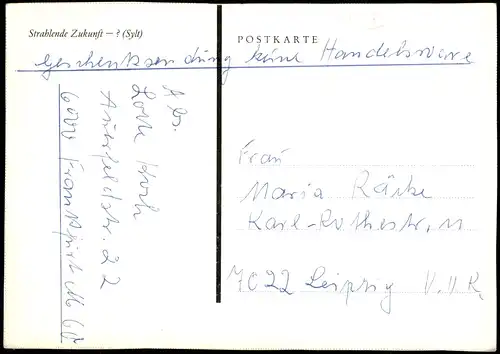 Strahlende Zukunft – ? (Sylt)
POSTKARTE
Geschenksendung keine Handelsware
Abs.
Lotte Koch
Auerfeldstr. 22
6000 Frankfurt M 60
Frau
Maria Räcke
Karl-Rothestr. 11
7022 Leipzig